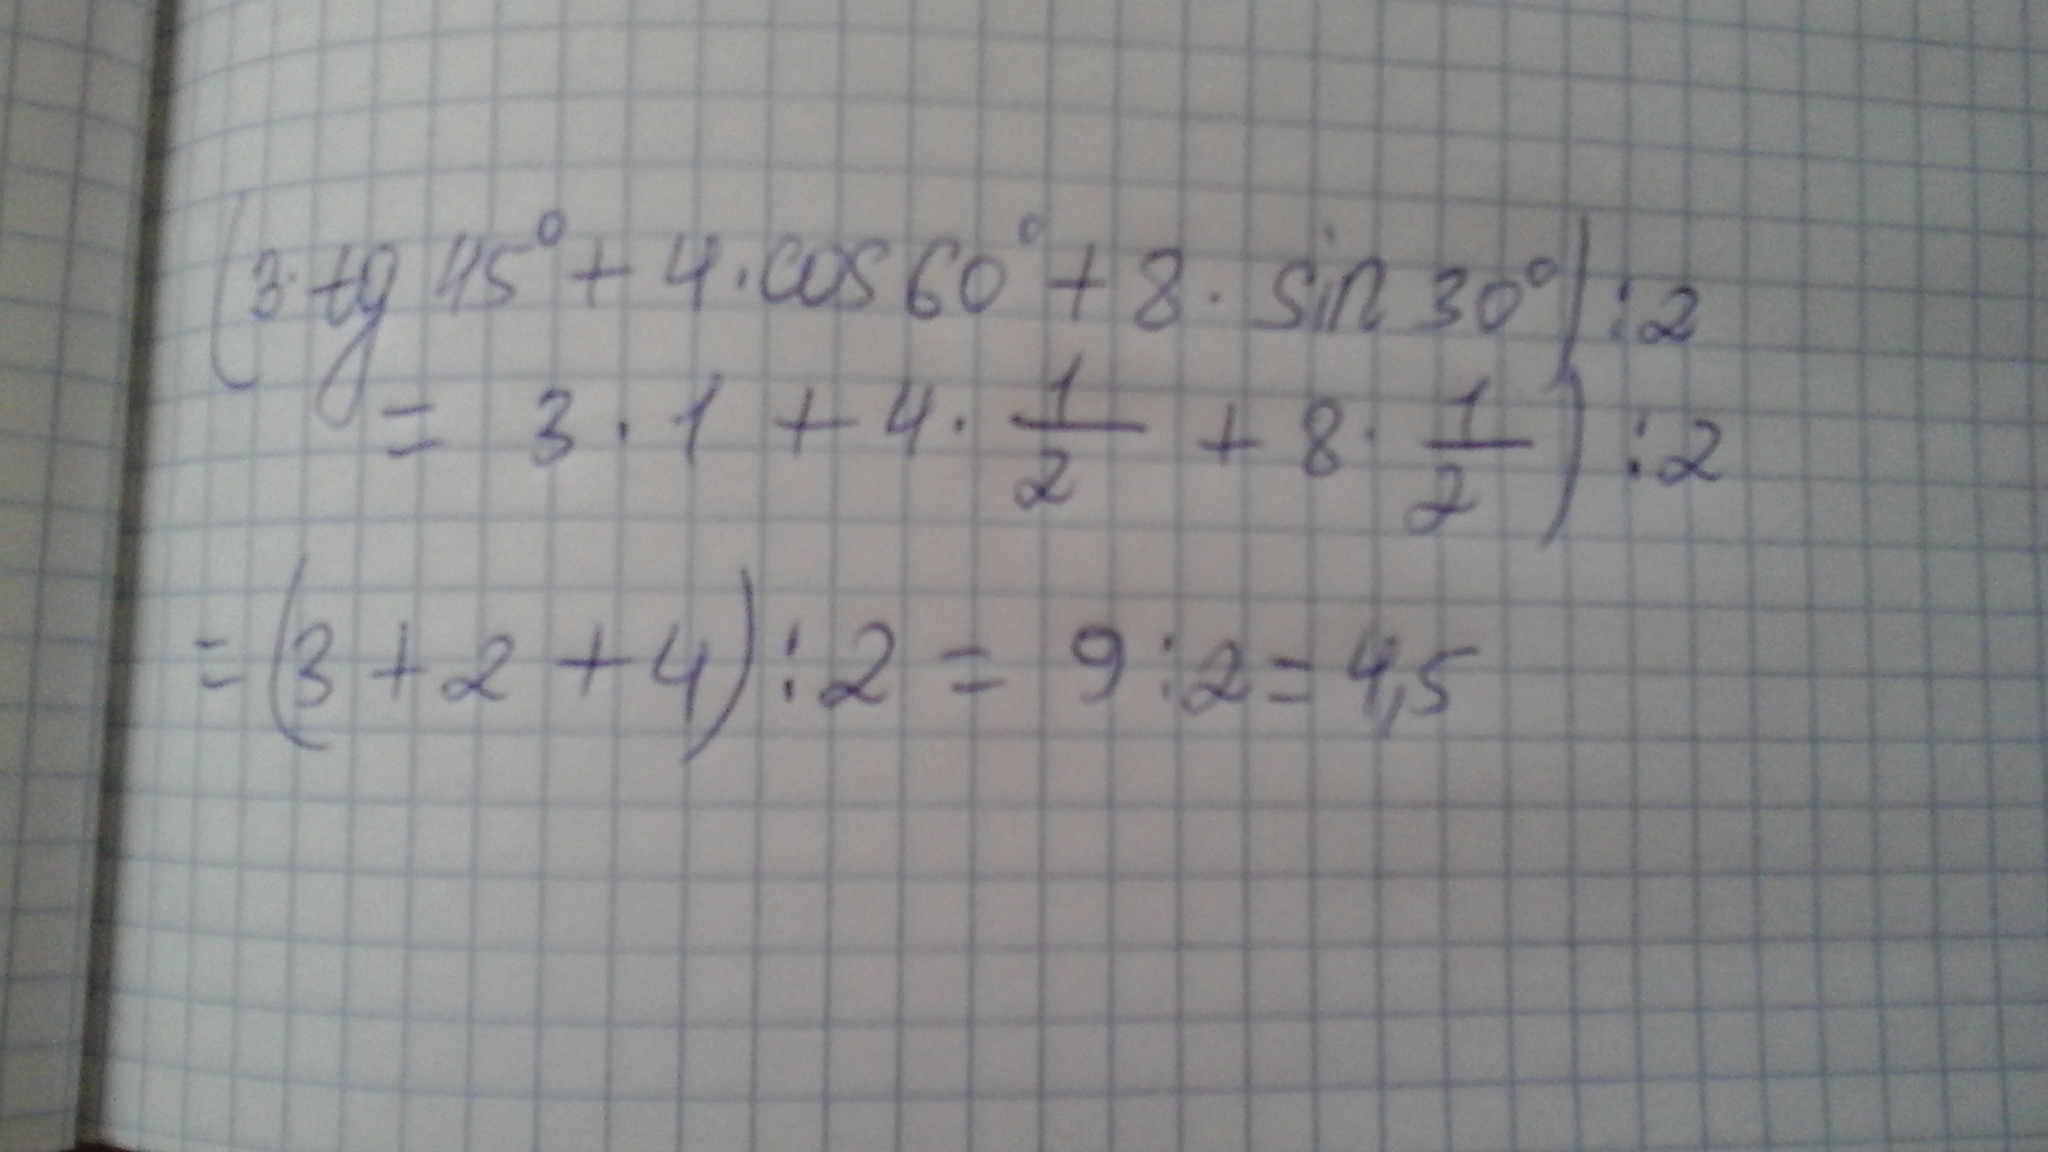 (3·tg 45° + 4·cos 60° + 8·sin 30°) : 2
= 3·1 + 4·1/2 + 8·1/2) : 2
= (3 + 2 + 4) : 2 = 9 : 2 = 4,5